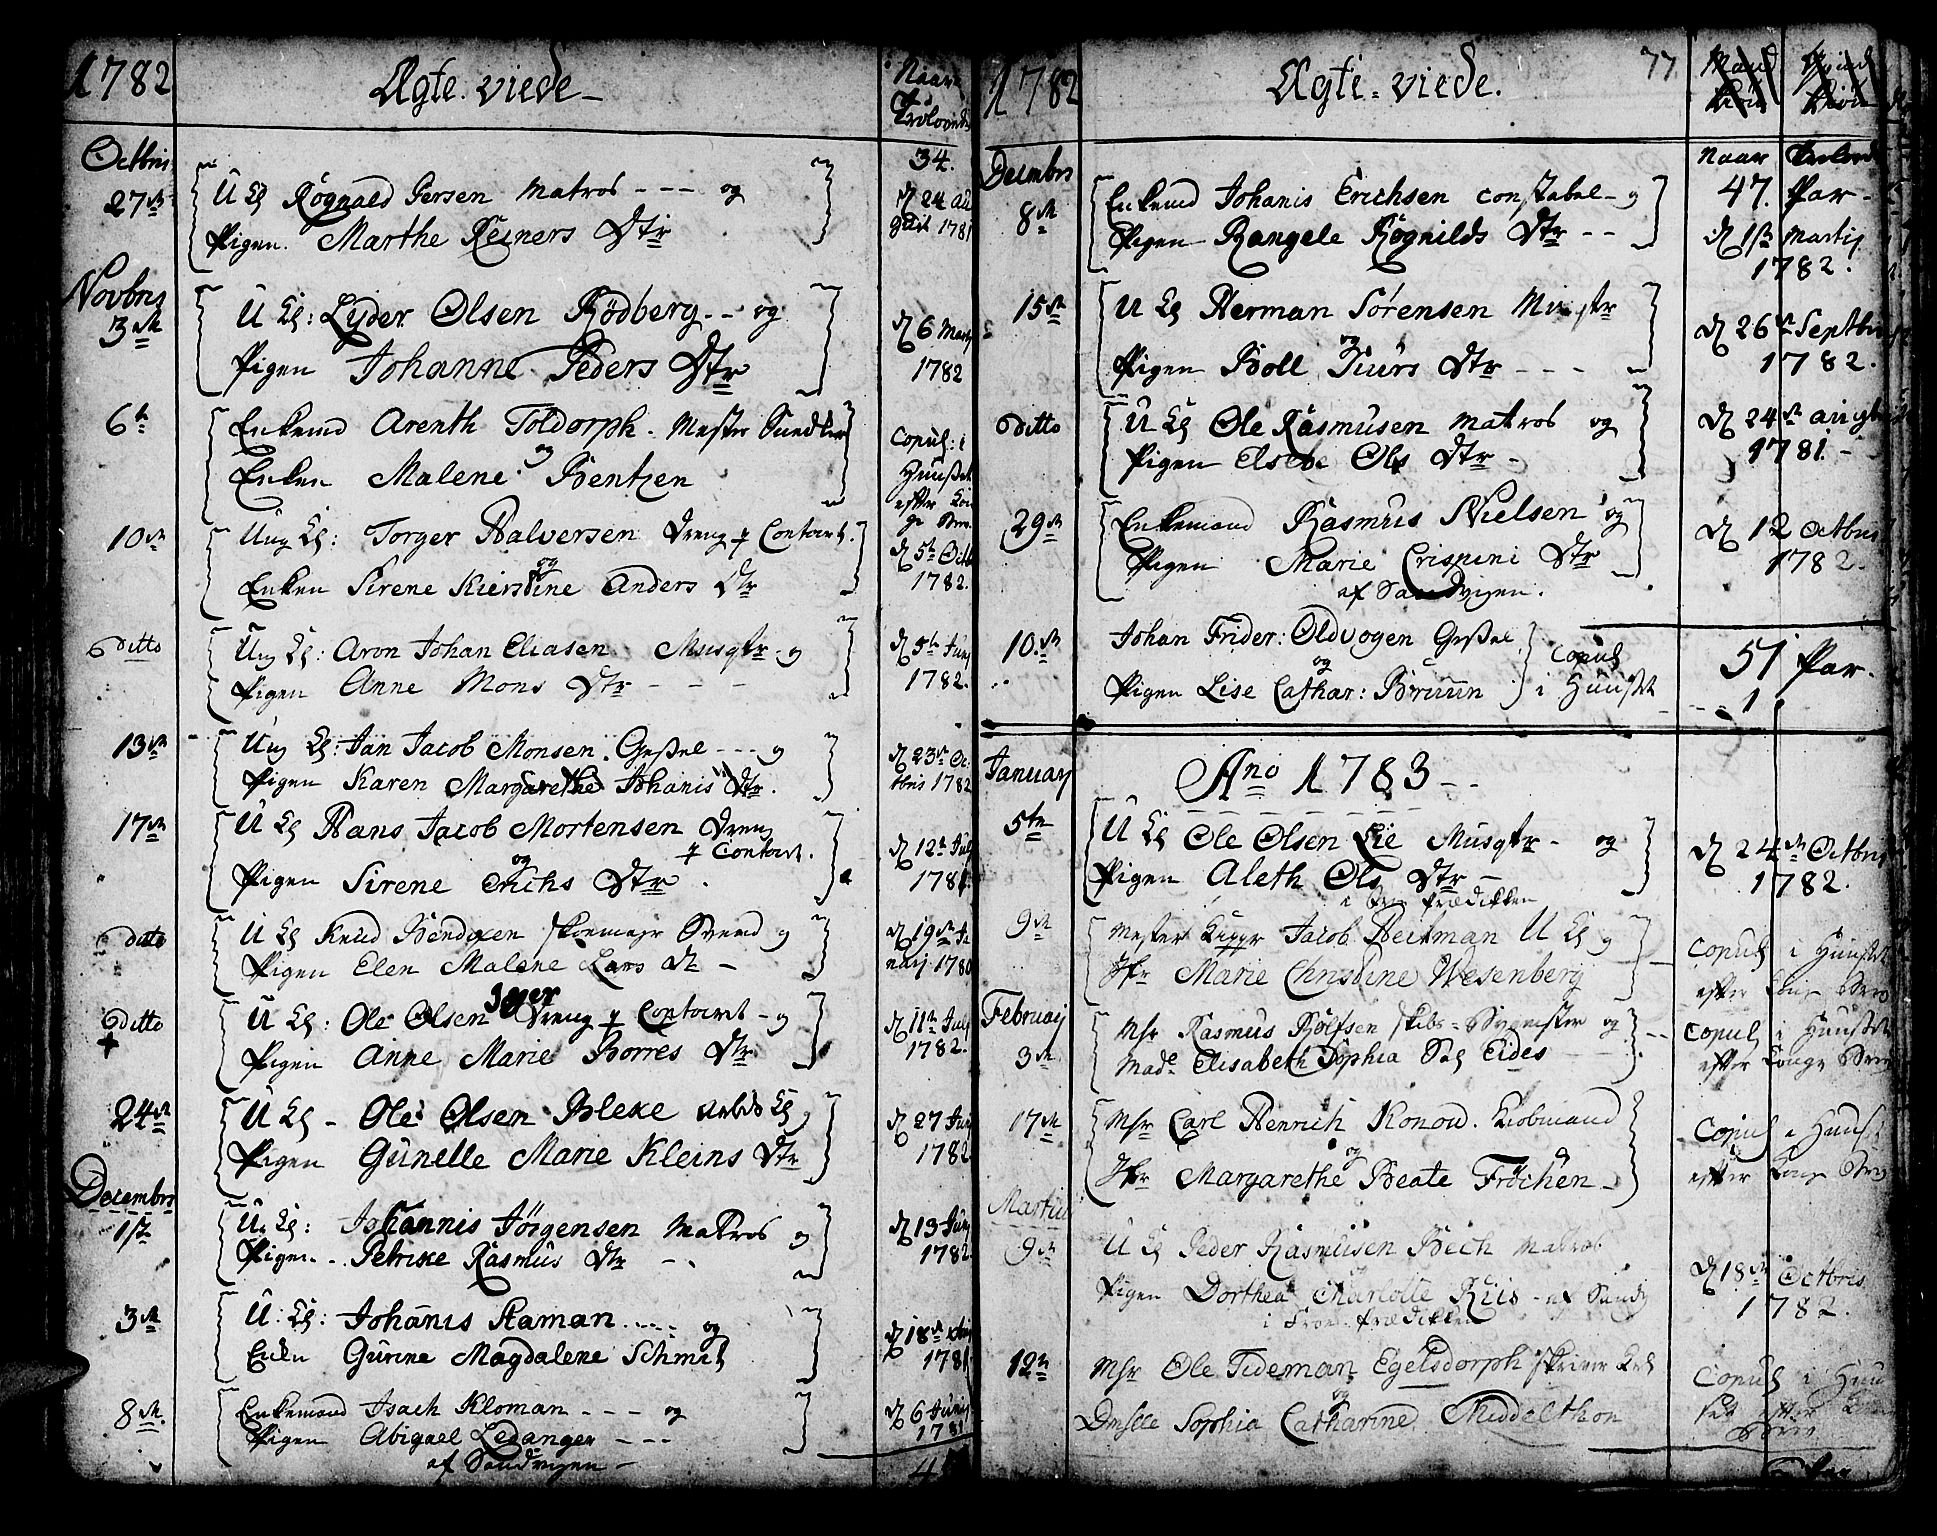 1782
Ægte viede
Naar
Trolovede
34.
Octbris
27de
U K Rognald Iversen Matros - - - og
Pigen. Marthe Reiners Dtr
d 24 Au
gust 1781
Novbris
3de
U K: Lyder Olsen Rödberg - - og
Pigen Johanne Peders Dtr
d 6 Marty
1782
6te
Enkemd Arenth Toldorph. Mester Snedker
og
Enken Malene Bentzen
Copul: i
Huuset
efter Kon
ge Brev
10de
Ung K: Torger Halversen Dreng p Contoret.
og
Enken Sirene Kierstine Anders Dtr
d 5te Octb
1782.
ditto
Ung K: Aron Johan Eliasen Musqtr - og
Pigen Anne Mons Dtr - - -
d 5te Juny
1782.
13de
Ung K: Jan Jacob Monsen. Geßel - - - og
Pigen Karen Margarethe Johanis Dtr.
d 23de Oc
tbris 1782
17de
U K Hans Jacob Mortensen Dreng
p Contort.
og
Pigen Sirene Erichs Dtr.
d 12te July
1781.
dito
U K Knud Bendixen Skoemagr Svend og
Pigen Elen Malene Lars Dtr -
d 19de Ja
nuarj 1780
ditto
U K: Ole Olsen Iger Dreng p Contoret - og
Pigen Anne Marie Borres Dtr
d 11te July
1782.
24de
U K - Ole Olsen Bleke Arbds K og
Pigen Gunelle Marie Kleins Dtr
d 27 Juny
1782
Decembris
1ste
U K: Johannis Jörgensen Matros og
Pigen - Petrike Rasmus Dtr - -
d 13 Juny
1782
3de
U: K: Johanis Raman ..... og
Enken Gurine Magdalene Schmit
d 18de
1781
8de.
Enkemand Isach Kloman - - - og
Pigen Abigael Ledanger - - -
af Sandvigen -
d 6 Juny
1781
1782
Ægte viede.
77
Naar Trolovede
Decembr
8de
Enkemd Johanis Erichsen Constabel - og
Pigen Rangele Rognilds Dtr - -
47. Par -
d 1ste Martij
1782.
15de
U K Herman Sörensen Musqtr
og
Pigen Boll Juurs Dtr - - -
d 26de Septbris
1782.
ditto
U K Ole Rasmusen Matros og
Pigen Elsebe Ols Dtr -
d 24de Augusti
1781 -
29de
Enkemand Rasmus Nielsen og
Pigen Marie Crispini Dtr
af Sandvigen.
d 12 Octbris
1782.
10.de
Johan Frider: Oldvogen Geßel
og
Pigen Lise Cathar: Bruun
Copul
i Huuset
51 Par.
1
January
Ano 1783 - -
5te
U K Ole Olsen Lie Musqtr - og
Pigen Aleth Ols Dtr -
i Froe Prædikken
d 24de Octbris
1782.
9de
Mester Kipper Jacob Heitman U K og
Jfr Marie Christine Wesenberg
Copul i Huuset
efter Konge Brev
February
3de
Msr Rasmus Rolfsen Skibs-Bygmester og
Made Elisabeth Sophia Sal Eides
Copul i Huuset
efter Konge Brev
17de
Msr Carl Henrich Konow. Kiobmand
og
Jfr Margarethe Beate Fröchen -
Copul i Huuset
efter Konge Brev
Martius
9de
U K Peder Rasmusen Bech Matros
Pigen Dorthea Charlotte Riis - af Sandv
i Froe Prædikken
d 18de Octbris
1782.
12te
Msr Ole Tideman Egelsdorph Skriver Kal
og
Dmselle Sophia Catharine Middelthon
Copul i Huu
set efter
Brev